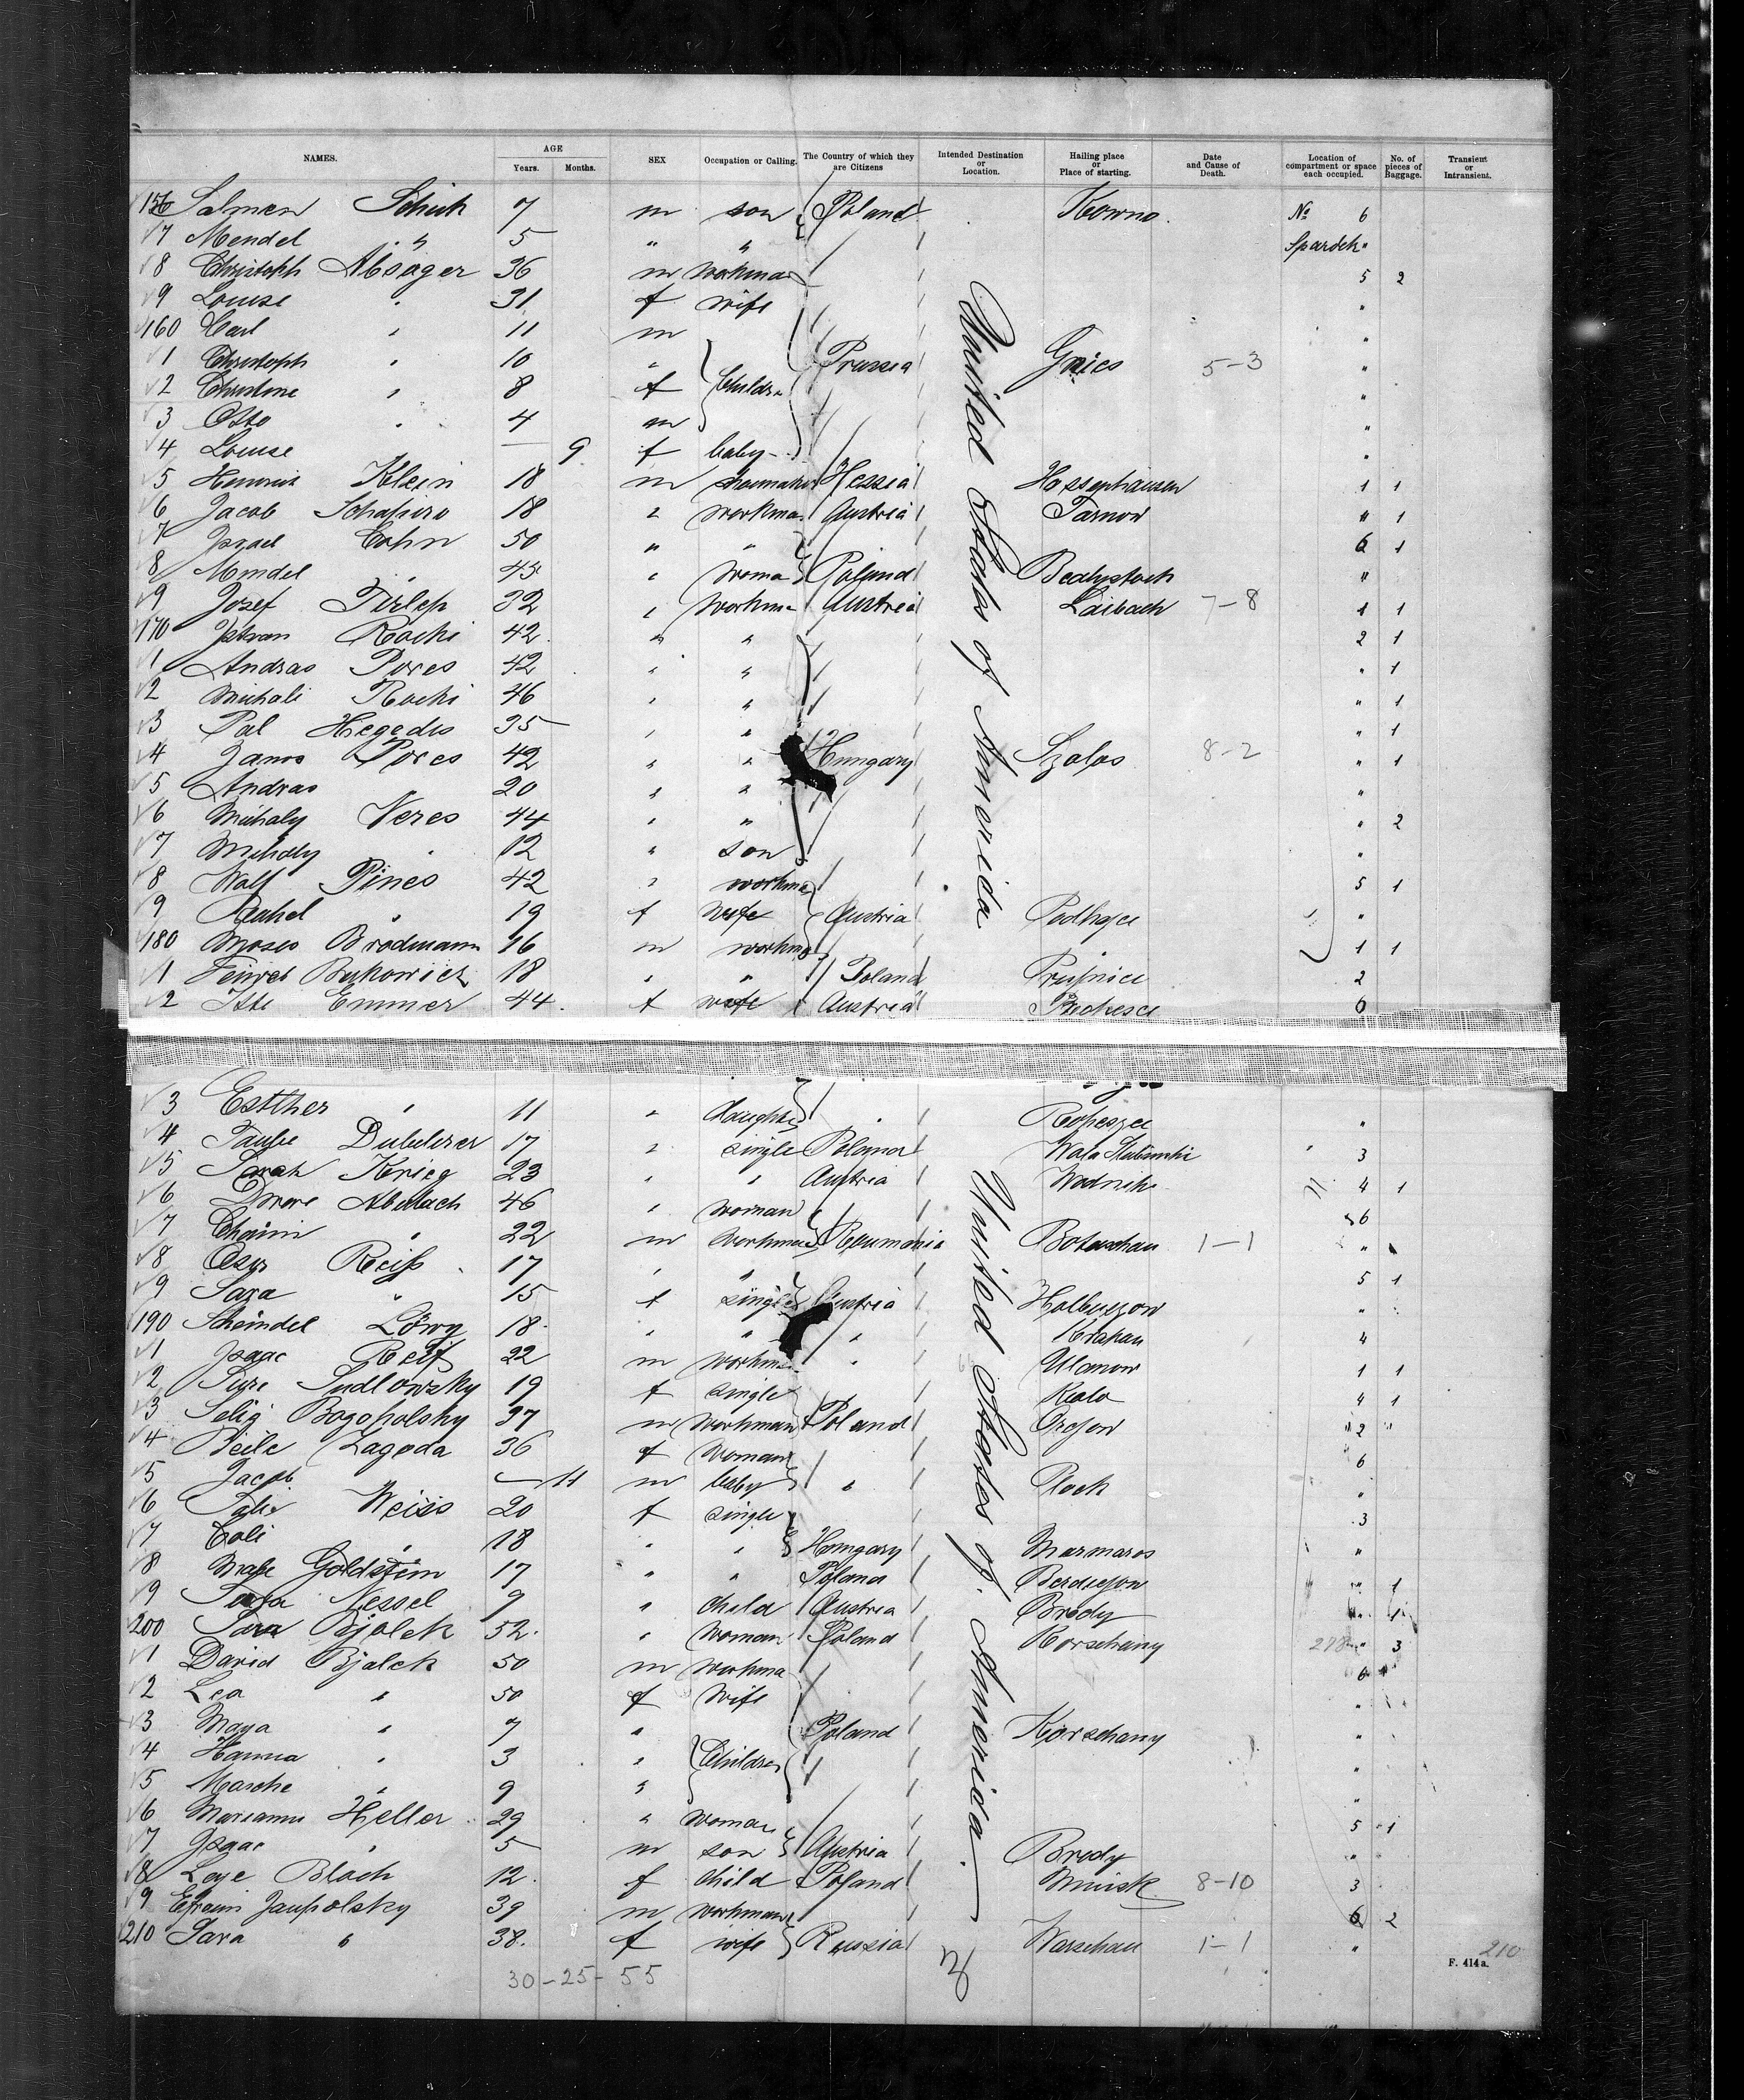 NAMES. AGE Years. Months. SEX Occupation or Calling. The Country of which they are Citizens Intended Destination or Location. Hailing place or Place of starting. Date and Cause of Death. Location of compartment or space each occupied. No. of pieces of Baggage. Transient or Intransient.
156 Salmen Schick 7 m son Poland Kowno. No 6
7 Mendel " 5 " " Spardek "
8 Christoph Absager 36 m workman 5 2
9 Louise " 31 f wife "
160 Carl " 11 m "
1 Christoph " 10 " Prussia 5-3 "
2 Christine " 8 f Children "
3 Otto " 4 m "
4 Louise — 9 f baby "
5 Klein 18 m Hessia 1 1
6 Jacob Schapiro 18 " workma Austria Tarnow " 1
7 Israel Cohn 50 " " 6 1
8 Mindel " 43 " woma Poland "
9 Josef 32 " workma Austria Laibach 7-8 1 1
170 Rocki 42 " " 2 1
1 Andras Pores 42 " " " 1
2 Mihali Rocki 46 " " " 1
3 Pal Hegedis 35 " " " 1
4 Janos Pores 42 " " Hungary Szolos 8-2 " 1
5 Andras 20 " " "
6 Mihaly Veres 44 " " " 2
7 Mihaly " 12 " son "
8 Wolf Pines 42 " workma 5 1
9 Rahel " 19 f wife Austria Podhajce "
180 Moses Brodmann 16 m workma 1 1
1 18 " " Poland 2
2 Itte Emmer 44. f wife Austria 6
3 Estther " 11 " daughter " Ropeszee "
4 Taube 17 " single Poland Wola 3
5 Sarah Krieg 23 " " Austria 4 1
6 46 " woman 6
7 Chaim " 22 m workman Roumania Botoschau 1-1 "
8 Reiss 17 " " 5 1
9 Sara " 15 f single Austria "
190 Scheindel Löwy 18 " " " Krakau 4
1 Isaac Reif 22 m workman " Ulanow 1 1
2 Sudlowsky 19 f single Kalo 4 1
3 Selig Bogopolsky 37 m workman Poland " 2 "
4 Beile Lagoda 36 f woman 6
5 Jacob — 11 m baby " Plock "
6 Weiss 20 f single 3
7 " 18 " " Hungary Marmaros "
8 Goldstein 17 " " Poland " 1
9 Nessel 9 " child Austria Brody " 1
200 Sara Bjalek 52. " woman Poland Korschany " 3
1 David Bjalek 50 m workma 6
2 Lea " 50 f wife "
3 Maya " 7 " Poland Korschany "
4 Hanna " 3 " Children "
5 Masche " 9 " "
6 Heller 29 " woman 5 1
7 Isaac " 5 m son Austria Brody "
8 Laye Bloch 12. f child Poland Minsk 8-10 3
9 Efraim Jaupolsky 39 m workman 6 2
210 Sara " 38. f wife Russia Warschau 1-1 "
United States of America
United States of America
30-25-55
210
F. 414 a.